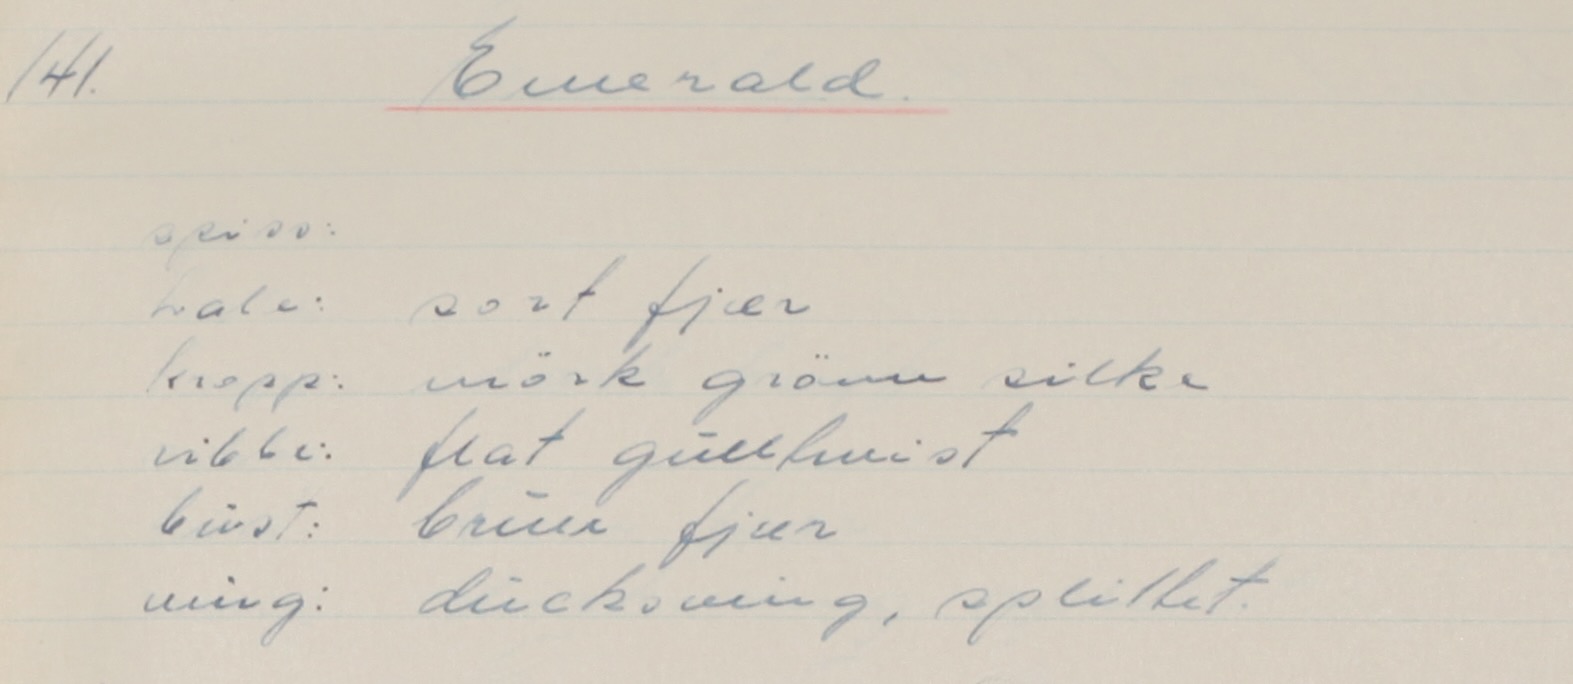 141. Emerald.
spiss:
hale: sort fjær
kropp: mörk grönn silke
ribbe: flat gulltvist
bust: brun fjær
ving: ducksving, splittet.